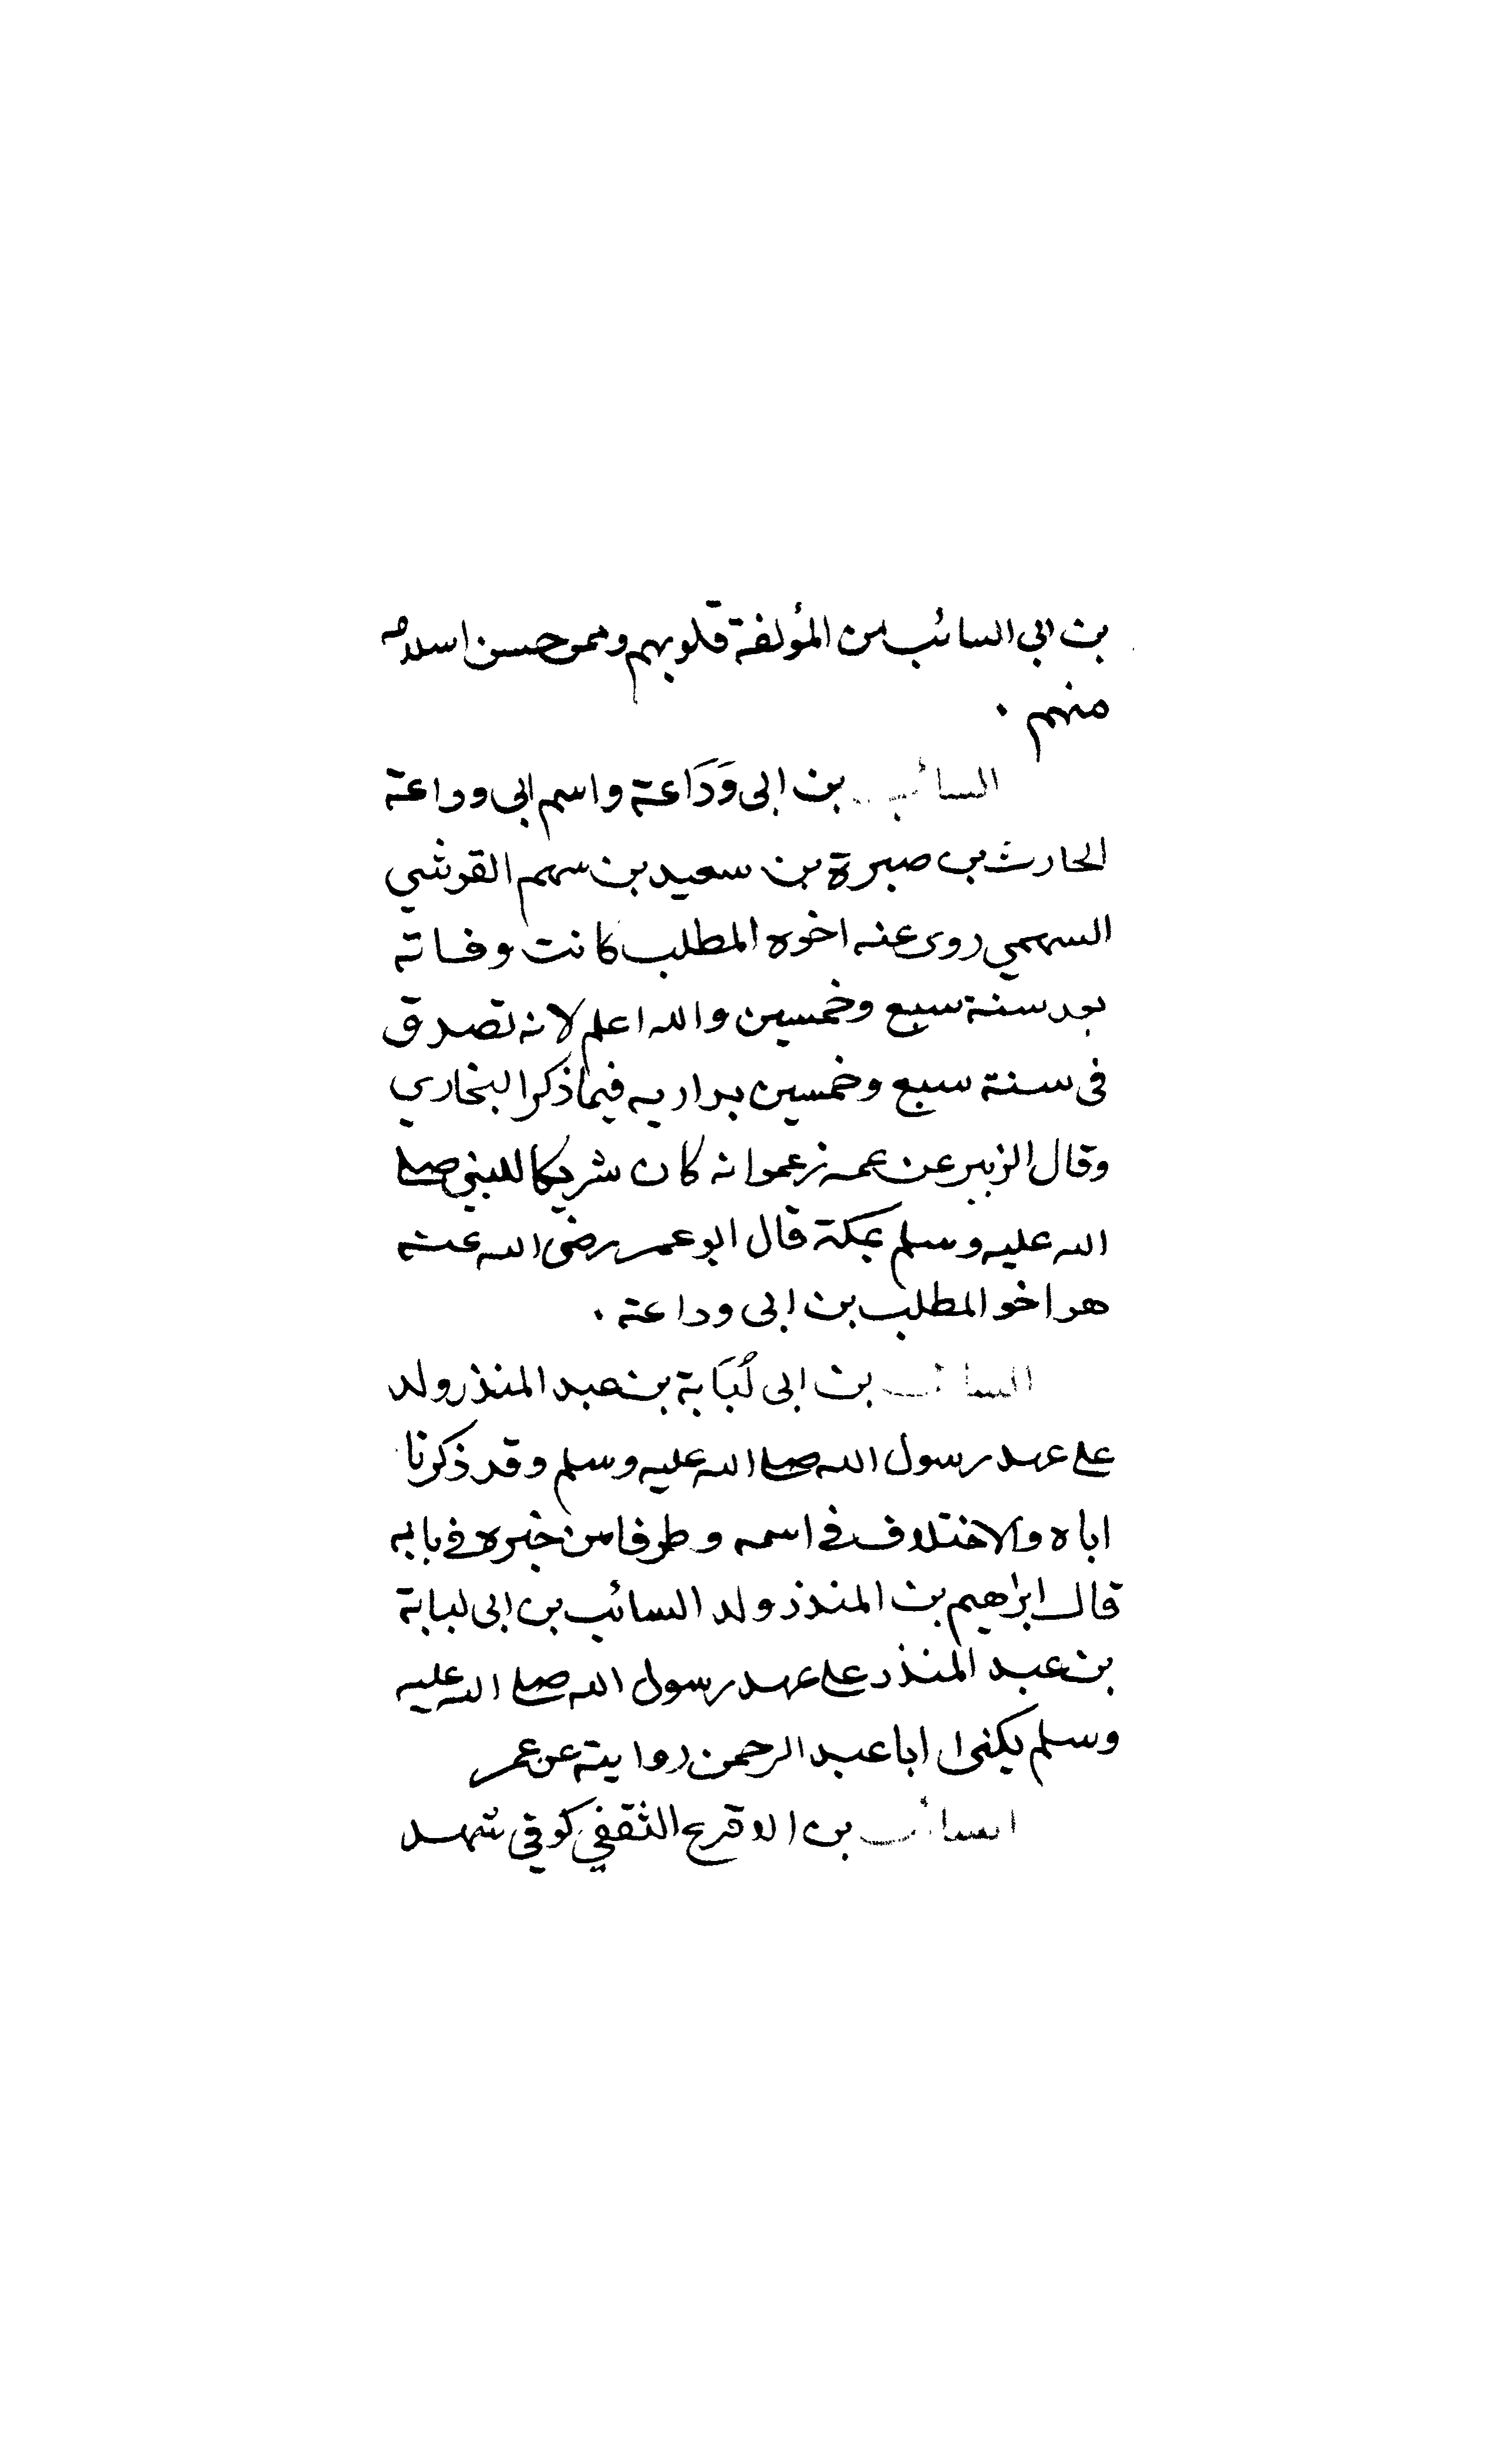 بن ابى السائب من المؤلفة قلوبهم وممن حسن اسلامه
منهم .
السائب بن ابى وَدَاعة واسم ابى وداعة
الحارث بن صبرة بن سعيد بن سهم القرشي
السهمي روى عنه اخوه المطلب كانت وفاته
بعد سنة سبع وخمسين والله اعلم لانه تصدق
فى سنة سبع وخمسين بداريه فيما ذكر البخاري
وقال الزبير عن عمه زعموا انه كان شريكا للنبي صلى
الله عليه وسلم بمكة قال ابو عمر رضى الله عنه
هو اخو المطلب بن ابى وداعة .
السائب بن ابى لُبَابة بن عبد المنذر ولد
على عهد رسول الله صلى الله عليه وسلم وقد ذكرنا
اباه والاختلاف في اسمه وطرفا من خبره في بابه
قال ابراهيم بن المنذر ولد السائب بن ابى لبابة
بن عبد المنذر على عهد رسول الله صلى الله عليه
وسلم يكنى ابا عبد الرحمن روايته عن عمر
السائب بن الاقرع الثقفي كوفي شهد